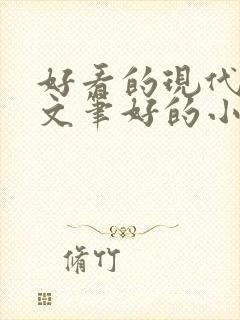 好看的现代
文笔好的小
脩竹